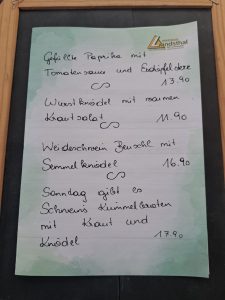 Landsthal
Gefüllte Paprika mit
Tomatensauce und Erdäpfel
13.90
Wurstknödel mit warmen
Krautsalat 11.90
Weideschwein Beuschl mit
Semmelknödel 16.90
Sonntag gibt es
Schweins Kümmelbraten
mit Kraut und
Knödel 17.90